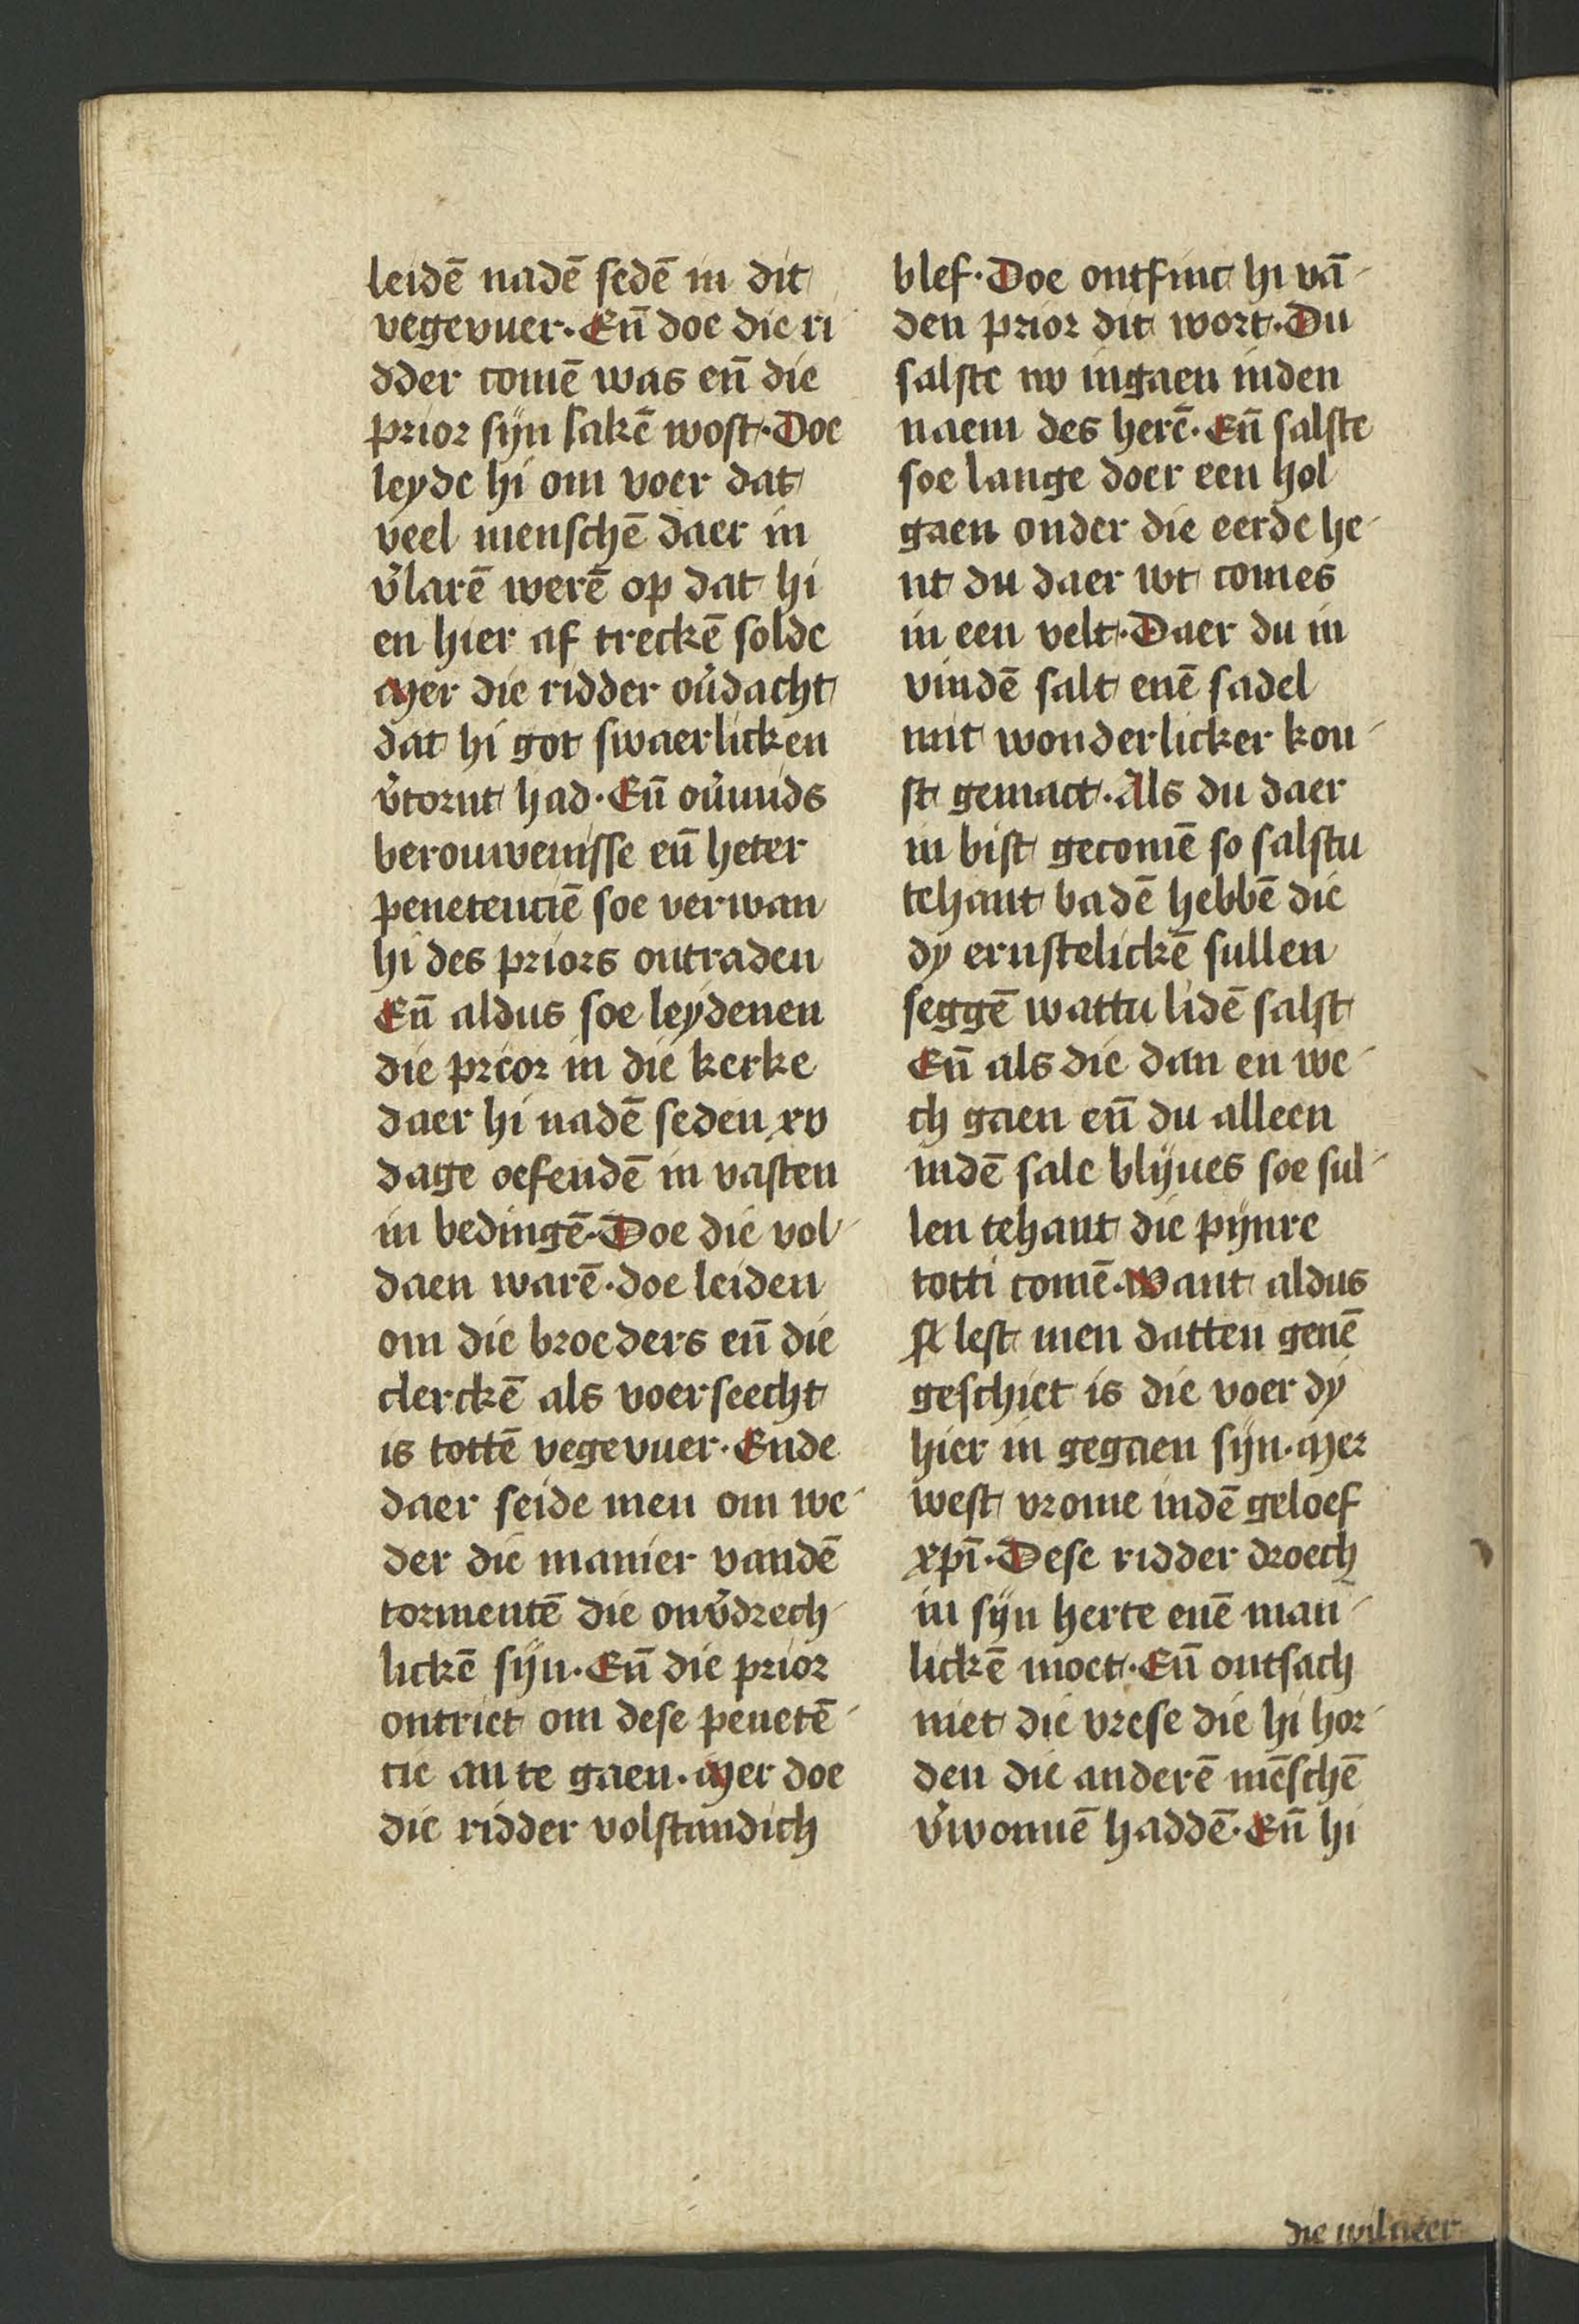 leidē nadē sedē in dit
vegevuer. Eñ doe die ri
dder comē was eñ die
prior sijn sakē wost. Doe
leyde hi om voer dat
veel menschē daer in
v̄larē werē op dat hi
en hier af treckē solde
Mer die ridder ov̄dacht
dat hi got swaerlicken
v̄tornt had. Eñ ov̄mids
berouwenisse eñ heter
penetenciē soe verwan
hi des priors ontraden
Eñ aldus soe leydenen
die preor in die kerke
daer hi nadē seden xv
dage oefendē in vasten
in bedingē. Doe die vol
daen warē. doe leiden
om die broeders eñ die
clerckē als voerseecht
is tottē vegevuer. Ende
daer seide men om we
der die manier vandē
tormentē die onv̄drech
lickē sijn. Eñ die prior
ontriet om dese penetē
tie an te gaen. Mer doe
die ridder volstandich
blef. Doe ontfinc hi vā
den prior dit wort. Du
salste nv ingaen inden
naem des herē. Eñ salste
soe lange doer een hol
gaen onder die eerde he
nt du daer wt comes
in een velt. Daer du in
vindē salt enē sadel
mit wonderlicker kon
st gemact. Als du daer
in bist gecomē so salstu
tehant badē hebbē die
dy ernstelickē sullen
seggē wattu lidē salst
Eñ als die dan en we
ch gaen eñ du alleen
indē sale blijues soe sul
len tehant die pijnre
totti comē. Want aldus
lest men datten genē
geschiet is die voer dy
hier in gegaen sijn. Mer
west vrome indē geloef
xp̄i. Dese ridder droech
in sijn herte enē man
lickē moet. Eñ ontsach
niet die vrese die hi hor
den die anderē mēschē
v̄wonnē haddē. Eñ hi
die wilneer